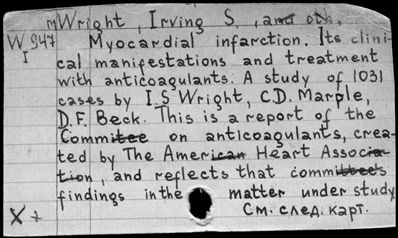 Wright, Irving S., and oth.
W 947 Myocardial infarction. Its clini-
I cal manifestations and treatment
with anticoagulants. A study of 1031
cases by I.S Wright, C.D. Marple,
D.F. Beck. This is a report of the
Committee on anticoagulants, crea-
ted by The American Heart Associa-
tion, and reflects that committee's
findings in the matter under study
X+ См. след. карт.